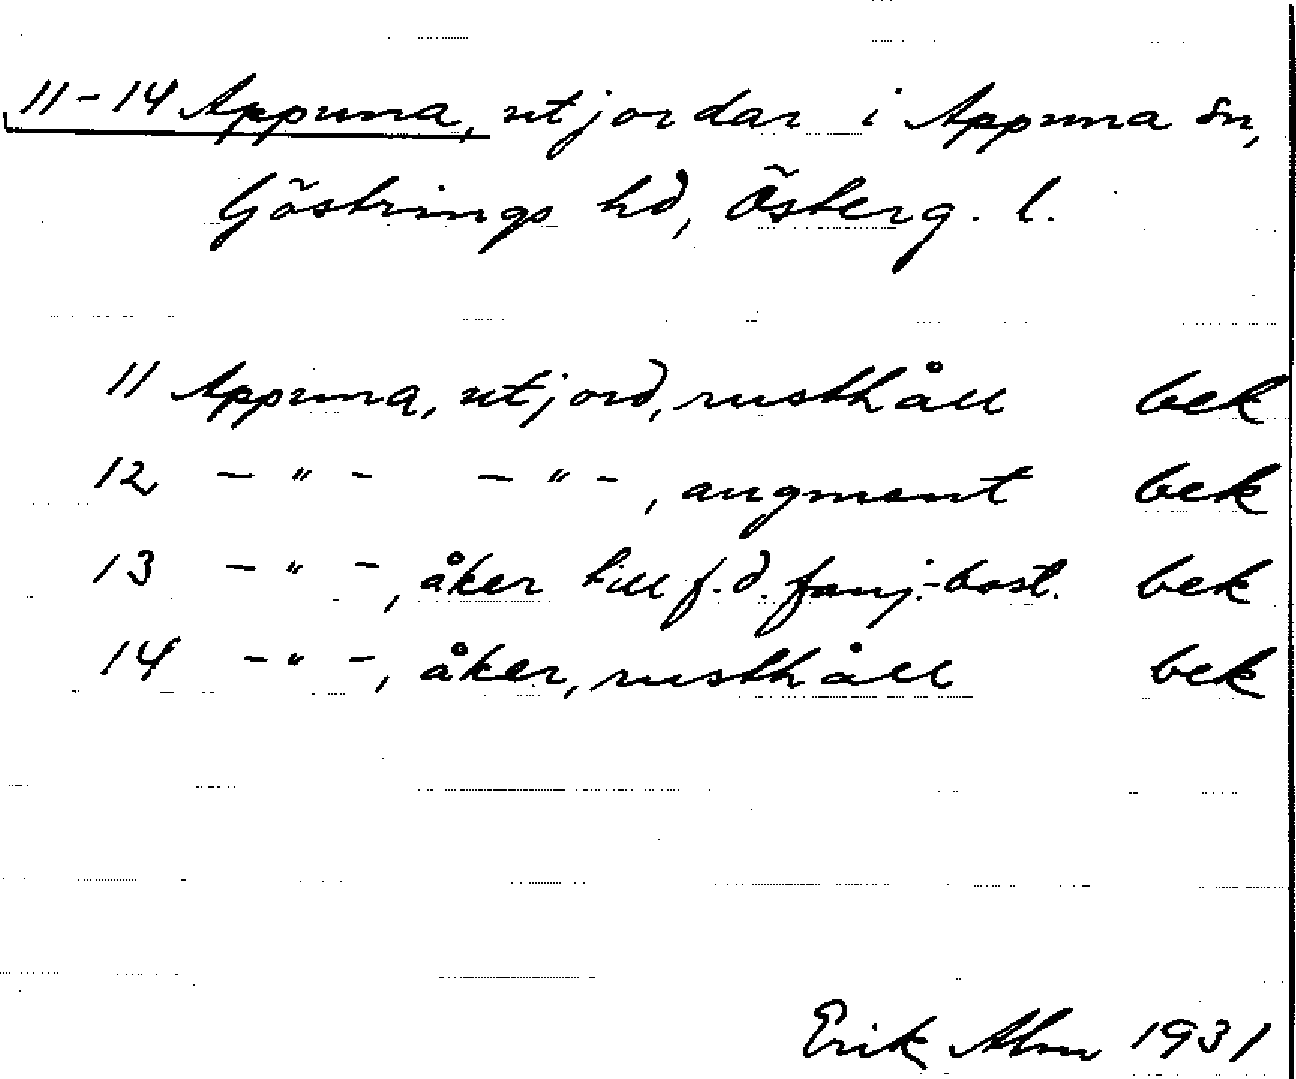 11-14 Appuna, utjordar i Appuna sn,
Göstrings hd, Österg. l.
11 Appuna, utjord, rusthåll bek
12 - " - - " - , augment bek
13 - " - , åker till f.d. fanj.-bost. bek
14 - " - , åker, rusthåll bek
Erik Alm 1931